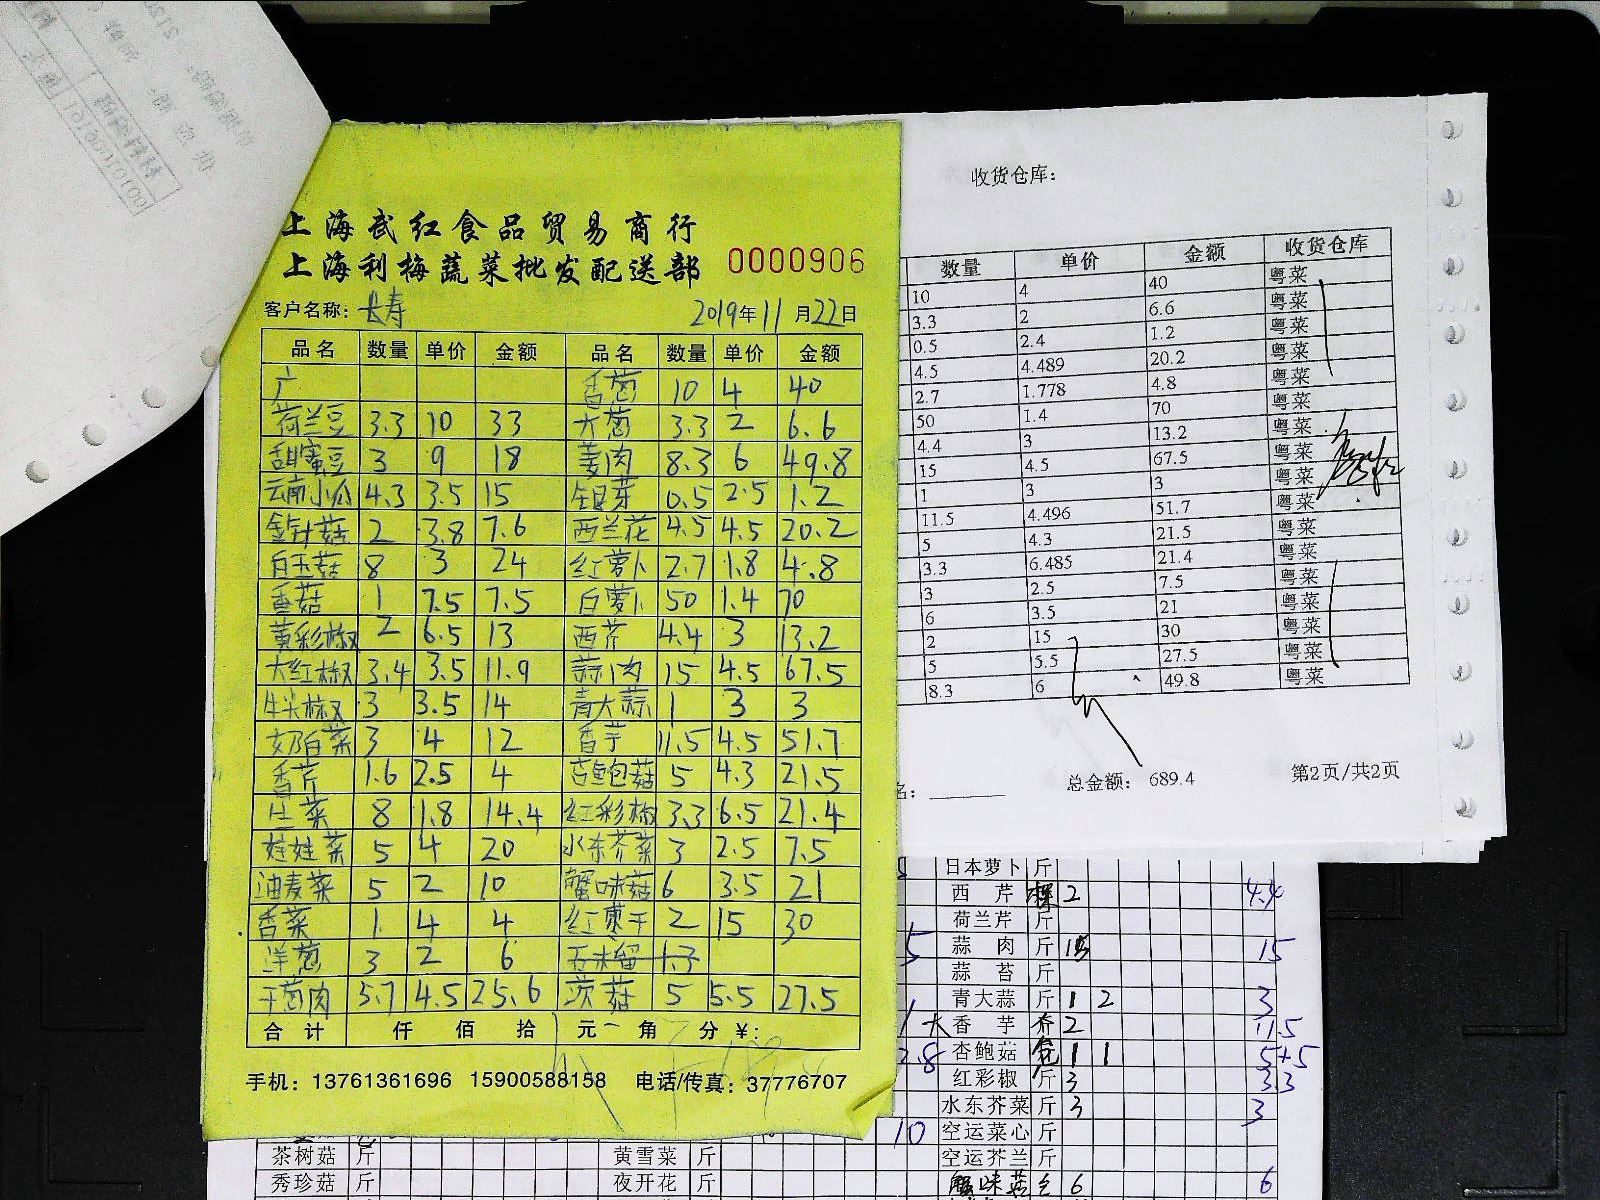 上海武红食品贸易商行
上海利梅蔬菜批发配送部 0000906
客户名称：长寿 2019年11月22日
品名 数量 单价 金额 品名 数量 单价 金额
广 香葱 10 4 40
荷兰豆 3.3 10 33 大葱 3.3 2 6.6
甜蜜豆 3 9 18 姜肉 8.3 6 49.8
云南小瓜 4.3 3.5 15 银芽 0.5 2.5 1.2
金针菇 2 3.8 7.6 西兰花 4.5 4.5 20.2
白玉菇 8 3 24 红萝卜 2.7 1.8 4.8
香菇 1 7.5 7.5 白萝卜 50 1.4 70
黄彩椒 2 6.5 13 西芹 4.4 3 13.2
大红椒 3.4 3.5 11.9 蒜肉 15 4.5 67.5
牛尖椒 3 3.5 14 青大蒜 1 3 3
奶白菜 3 4 12 香芋 11.5 4.5 51.7
香芹 1.6 2.5 4 杏鲍菇 5 4.3 21.5
生菜 8 1.8 14.4 红彩椒 3.3 6.5 21.4
娃娃菜 5 4 20 水东芥菜 3 2.5 7.5
油麦菜 5 2 10 蟹味菇 6 3.5 21
香菜 1 4 4 红枣干 2 15 30
洋葱 3 2 6
干葱肉 5.7 4.5 25.6 茨菇 5 5.5 27.5
合计 仟 佰 拾 元 角 分 ¥：
手机：13761361696 15900588158 电话/传真：37776707
收货仓库：
数量 单价 金额 收货仓库
10 4 40 粤菜
3.3 2 6.6 粤菜
0.5 2.4 1.2 粤菜
4.5 4.489 20.2 粤菜
2.7 1.778 4.8 粤菜
50 1.4 70 粤菜
4.4 3 13.2 粤菜
15 4.5 67.5 粤菜
1 3 3 粤菜
11.5 4.496 51.7 粤菜
5 4.3 21.5 粤菜
3.3 6.485 21.4 粤菜
3 2.5 7.5 粤菜
6 3.5 21 粤菜
2 15 30 粤菜
5 5.5 27.5 粤菜
8.3 6 49.8 粤菜
名：
总金额：689.4 第2页/共2页
日本萝卜 斤
西芹 棵 2 4.4
荷兰芹 斤
蒜肉 斤 15 15
蒜苔 斤
青大蒜 斤 1 2 3
香芋 2 11.5
杏鲍菇 包 1 1 5+5
红彩椒 斤 3 3.3
水东芥菜 斤 3 3
10 空运菜心 斤
茶树菇 斤 黄雪菜 斤 空运芥兰 斤
秀珍菇 斤 夜开花 斤 蟹味菇 6 6